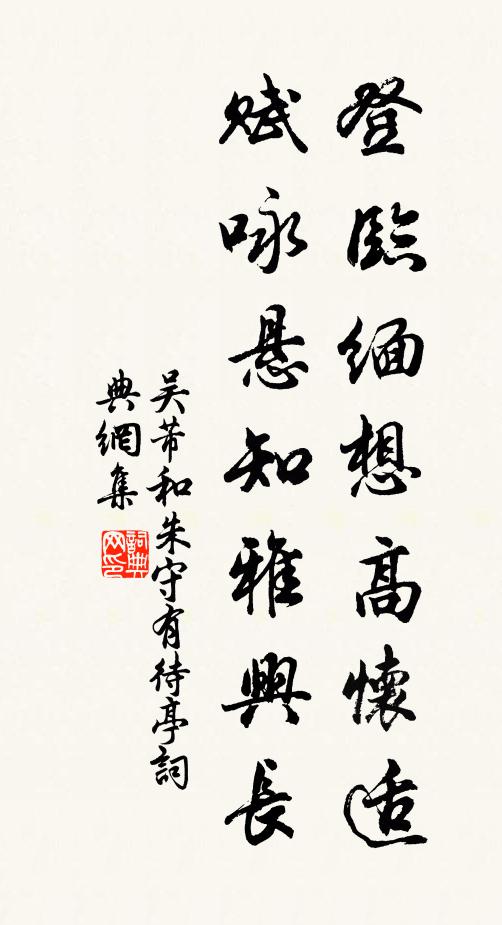 登臨緬想高懷适
賦咏悬知雅興長
吴芾和朱守有待亭詞
典網集
詞典
网印